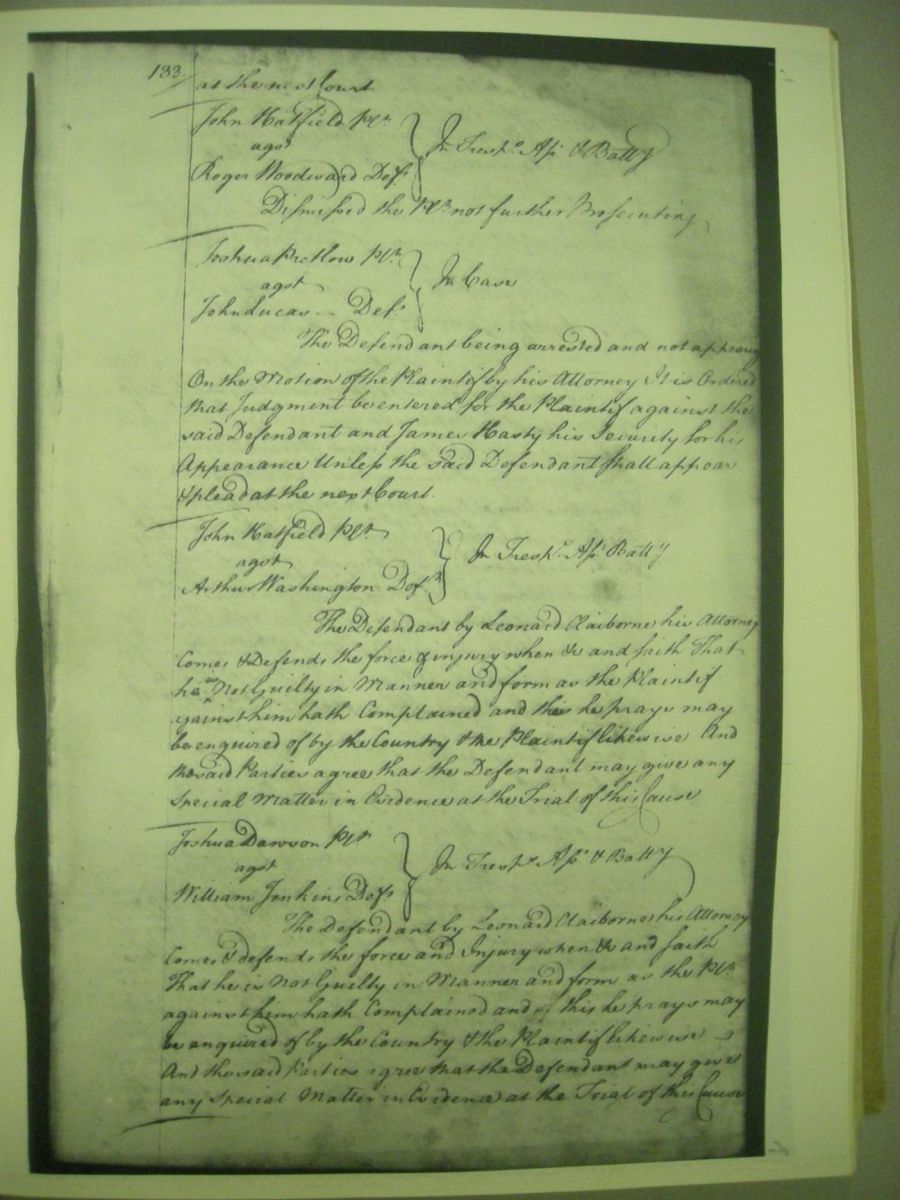 133
at the next Court
John Hatfield Plt
agst
Roger Woodward Deft
In Tresps. Asst & Batt'y
Dismissed the Plt not further Prosecuting
Joshua Pretlow Plt
agst
John Lucas Deft
In Case
The Defendant being arrested and not appearing
On the Motion of the Plaintif by his Attorney It is Ordered
that Judgment be entered for the Plaintif against the
said Defendant and James Hasty his Security for his
Appearance Unless the said Defendant shall appear
& plead at the next Court.
John Hatfield Plt
agst
Arthur Washington Deft
In Tresps. Asst Batt'y
The Defendant by Leonard Claiborne his Attorney
Comes & Defends the force & injury when &c and saith That
he is Not Guilty in Manner and form as the Plaintif
against him hath Complained and this he prays may
be enquired of by the Country & the Plaintif likewise And
the said Parties agree that the Defendant may give any
Special Matter in Evidence at the Trial of this Cause
Joshua Dawson Plt
agst
William Jenkins Deft
In Tresps. Asst & Batt'y
The Defendant by Leonard Claiborne his Attorney
Comes & defends the force and Injury when &c and saith
That he is Not Guilty in Manner and form as the Plt
against him hath Complained and this he prays may
be enquired of by the Country & the Plaintif likewise
And the said Parties agree that the Defendant may give
any Special Matter in Evidence at the Trial of this Cause